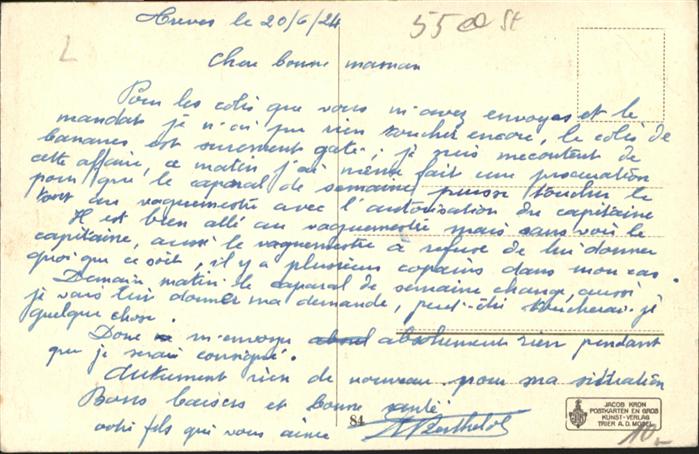 Treves le 20/6/24
5500 St
L
Chere bonne maman
Pour les colis que vous m'avez envoyés et le
mandat je n'ai pu rien toucher encore, le colis de
bananes est surement gaté ; je suis mecontent de
cette affaire, ce matin j'ai même fait une procuration
pour que le caporal de semaine puisse toucher le
tout au vaguemestre avec l'autorisation du capitaine
Il est bien allé au vaguemestre mais sans voir le
capitaine, aussi le vaguemestre à refusé de lui donner
quoi que ce soit, il y a plusieurs copains dans mon cas.
Demain matin le caporal de semaine change, aussi
je vais lui donner ma demande, peut-être toucherai-je
quelque chose.
Donc m'envoye absolument rien pendant
que je serai consigné.
Autrement rien de nouveau pour ma situation
Bons baisers et bonne santé
votre fils qui vous aime
Berthelot
84
JACOB KRON
POSTKARTEN EN GROS
KUNST-VERLAG
TRIER A.D. MOSEL
10.-